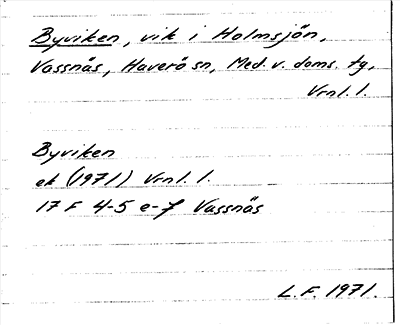 Byviken, vik i Holmsjön,
Vassnäs, Haverö sn, Med. v. doms. tg,
Vrnl. l.
Byviken
ek (1971) Vrnl. l.
17 F 4-5 e-f Vassnäs
L.F. 1971.